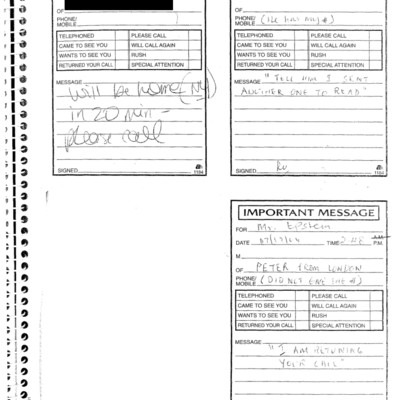 OF
PHONE/
MOBILE
TELEPHONED PLEASE CALL
CAME TO SEE YOU WILL CALL AGAIN
WANTS TO SEE YOU RUSH
RETURNED YOUR CALL SPECIAL ATTENTION
MESSAGE
will be home (NY)
in 20 min-
please call
SIGNED 1184
OF
PHONE/
MOBILE
TELEPHONED PLEASE CALL
CAME TO SEE YOU WILL CALL AGAIN
WANTS TO SEE YOU RUSH
RETURNED YOUR CALL SPECIAL ATTENTION
MESSAGE "TELL HIM I SENT
ANOTHER ONE TO READ"
SIGNED 1184
IMPORTANT MESSAGE
FOR Mr. Epstein
DATE TIME P.M.
M
OF PETER FROM LONDON
PHONE/ (DID NOT GIVE THE #)
MOBILE
TELEPHONED PLEASE CALL
CAME TO SEE YOU WILL CALL AGAIN
WANTS TO SEE YOU RUSH
RETURNED YOUR CALL SPECIAL ATTENTION
MESSAGE
"I AM RETURNING
YOUR CALL"